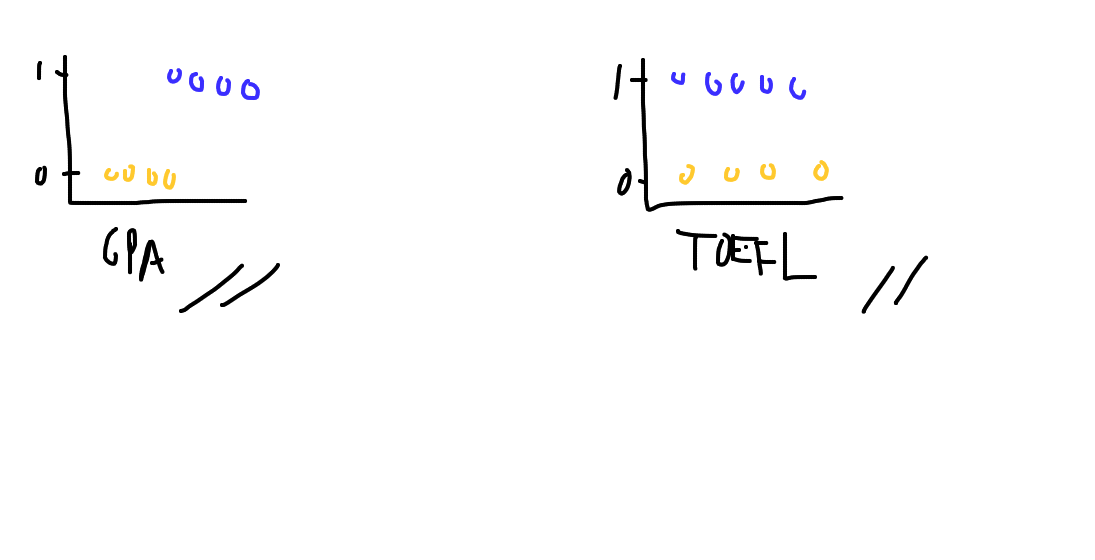 1
0
GPA
1
0
TOEFL